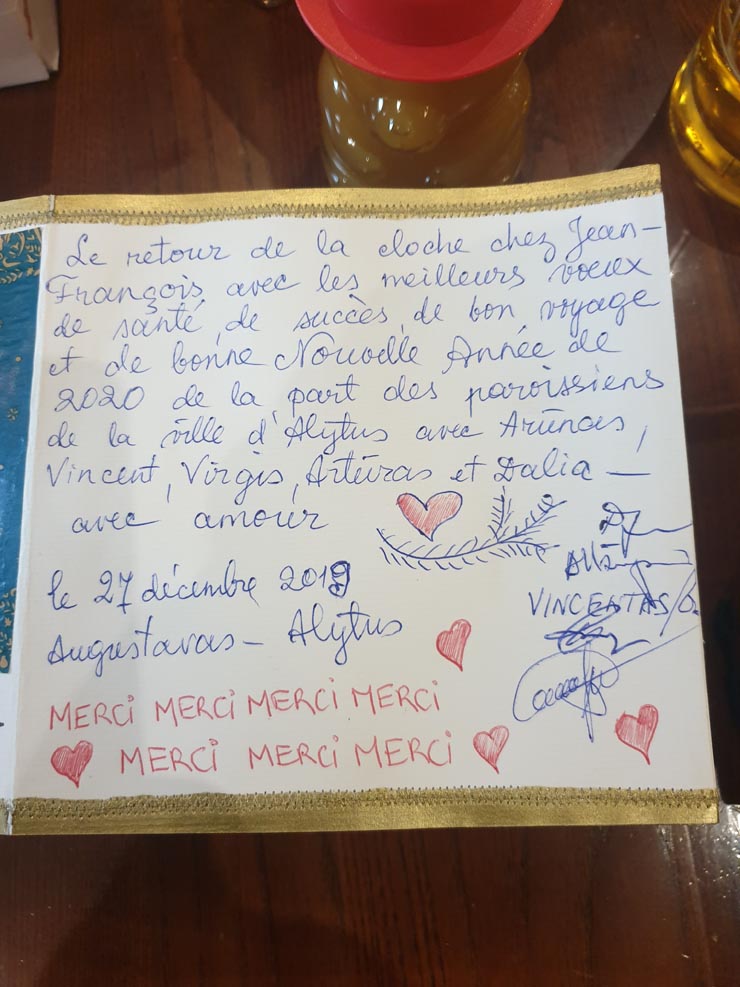 Le retour de la cloche chez Jean-
François avec les meilleurs voeux
de santé, de succès, de bon voyage
et de bonne Nouvelle Année de
2020 de la part des paroissiens
de la ville d'Alytus avec Arūnas,
Vincent, Virgis, Artūras et Dalia —
avec amour
le 27 décembre 2019
Augustavas - Alytus
VINCENTAS
MERCi MERCi MERCi MERCi
MERCi MERCi MERCi